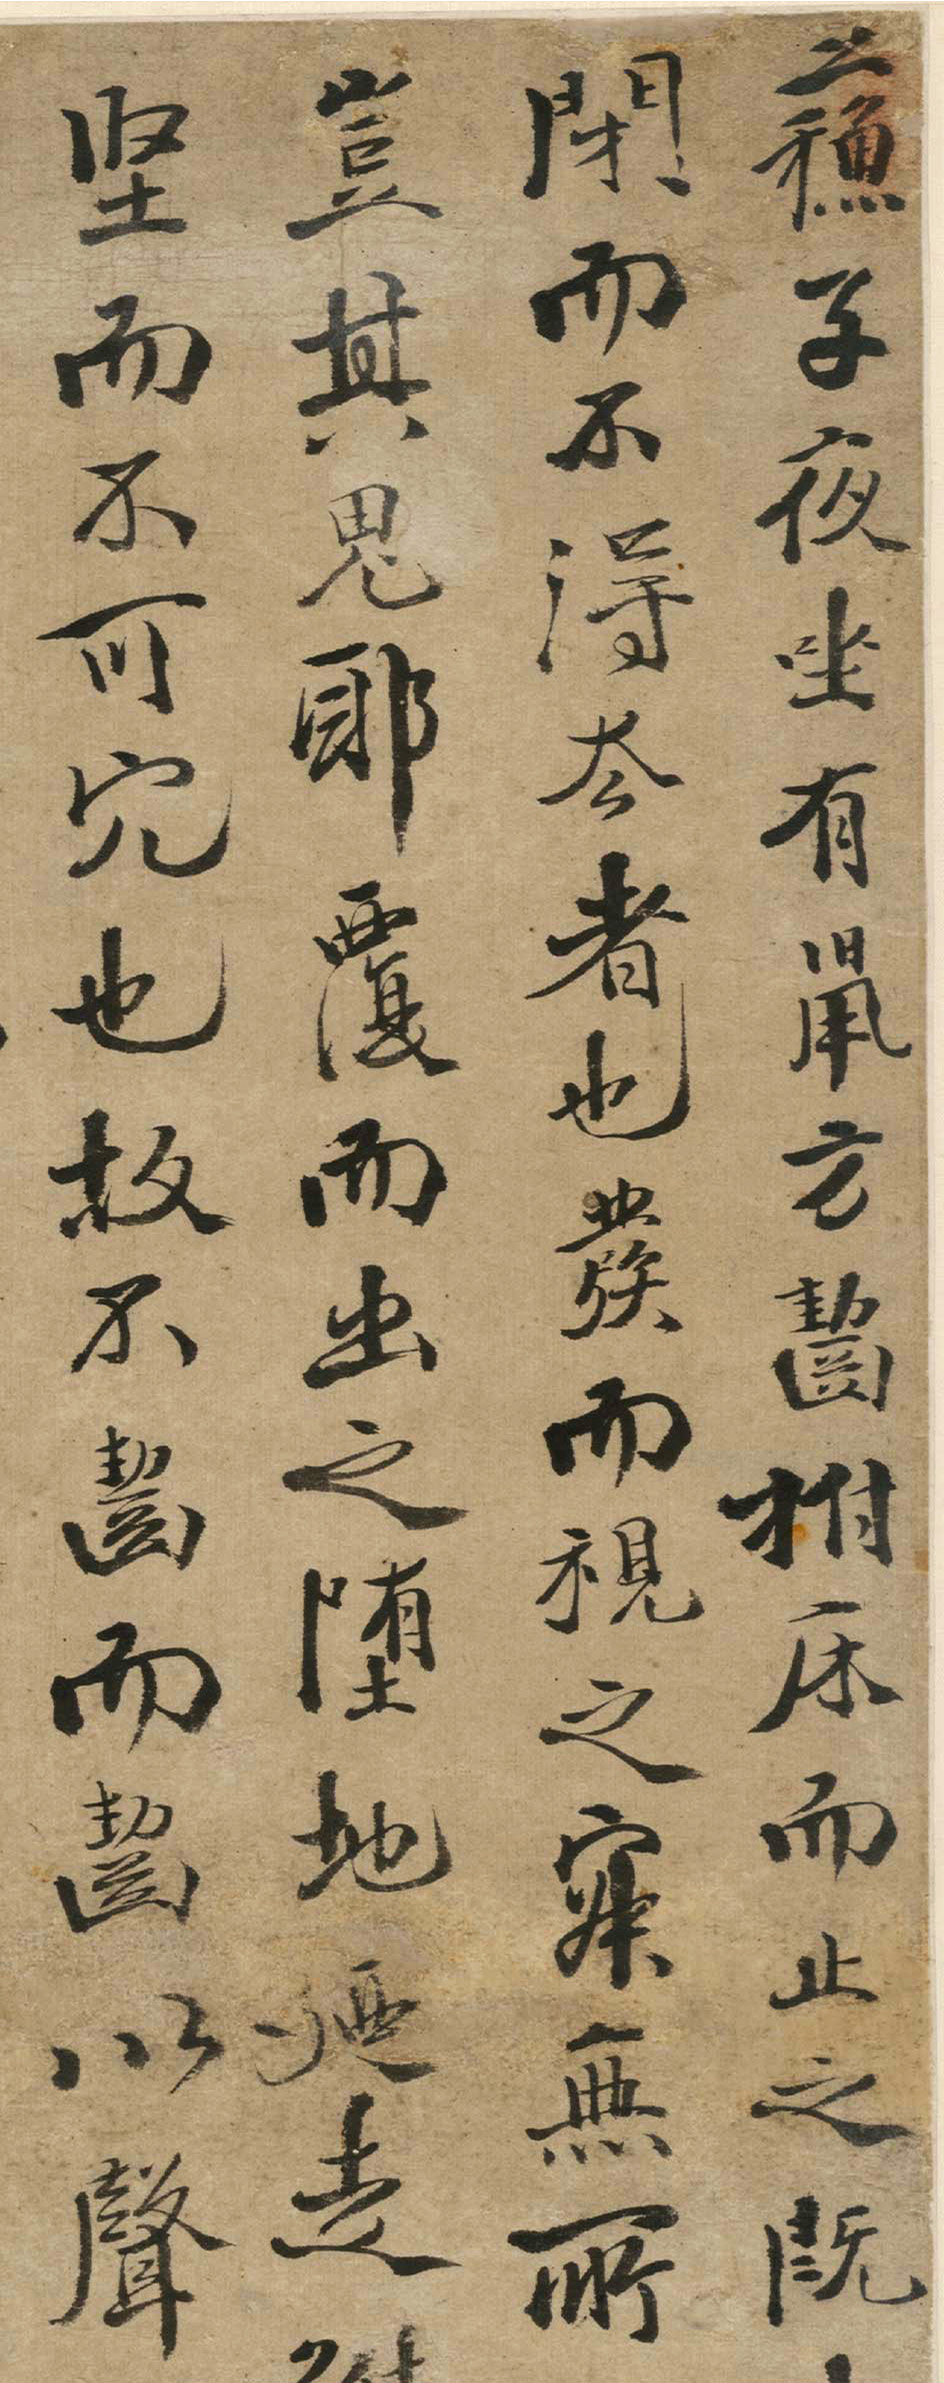 蘇子夜坐有鼠方齧拊床而止之既
閉而不得去者也發而視之寂無所
豈其鬼耶覆而出之堕地廼走
堅而不可穴也故不齧而齧以聲